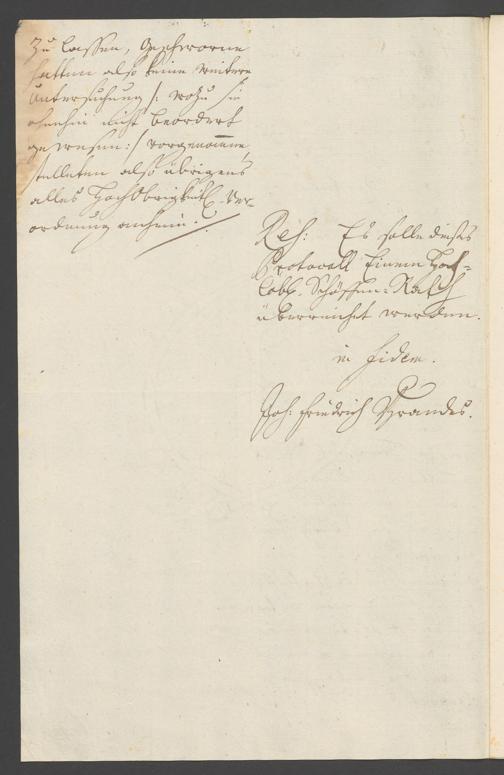 zu lassen, Geschworne
hatten also keine weitere
Untersuchung /: wozu sie
ohnehin nicht beordert
gewesen :/ vorgenommen,
stelleten also übrigens
alles HochObrigkeitl. Ver-
ordnung anheim.
Res: Es solle dieses
Protocoll Einem Hoch-
löbl. Schöffen-Rath
überreichet werden.
in fidem.
Joh: Friedrich Brandes.